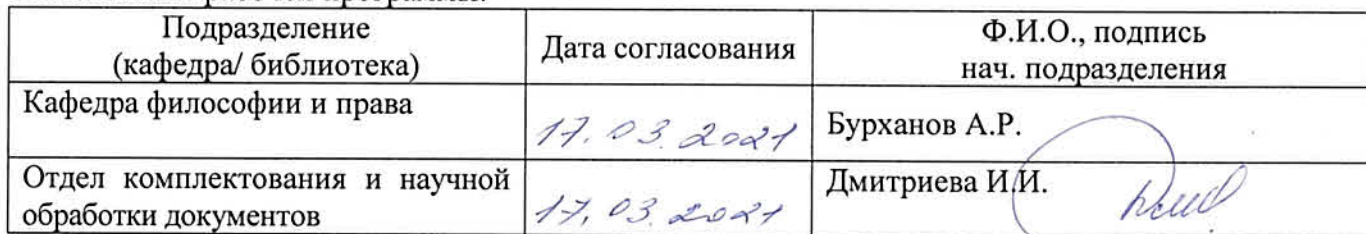 Подразделение
(кафедра/ библиотека)
Дата согласования
Ф.И.О., подпись
нач. подразделения
Кафедра философии и права
17.03.2021
Бурханов А.Р.
Отдел комплектования и научной
обработки документов
17.03.2021
Дмитриева И.И.